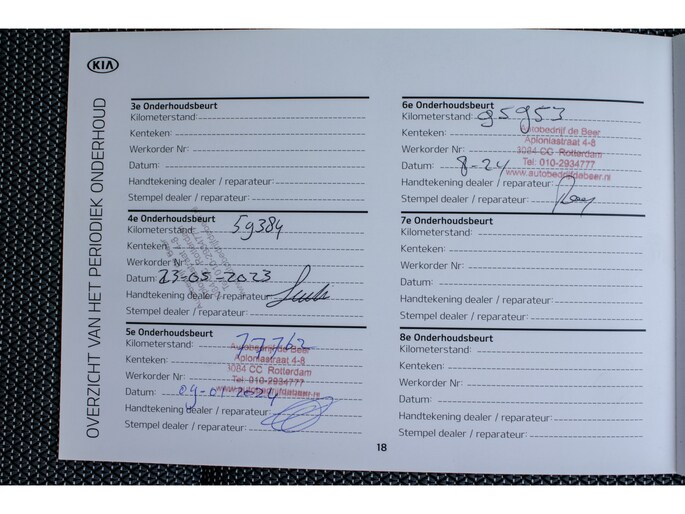 KIA
OVERZICHT VAN HET PERIODIEK ONDERHOUD
3e Onderhoudsbeurt
Kilometerstand:
Kenteken:
Werkorder Nr:
Datum:
Handtekening dealer / reparateur:
Stempel dealer / reparateur:
4e Onderhoudsbeurt
Kilometerstand: 59384
Kenteken:
Werkorder Nr:
Datum: 23-05-2023
Handtekening dealer / reparateur:
Stempel dealer / reparateur:
5e Onderhoudsbeurt
Kilometerstand: 77762
Autobedrijf de Beer
Kenteken:
Aploniastraat 4-8
3084 CC Rotterdam
Werkorder Nr:
Tel: 010-2934777
Datum: 09-01-2024
www.autobedrijfdebeer.nl
Handtekening dealer / reparateur:
Stempel dealer / reparateur:
6e Onderhoudsbeurt
Kilometerstand: 95953
Autobedrijf de Beer
Kenteken:
Aploniastraat 4-8
Werkorder Nr:
3084 CC Rotterdam
Datum: 8-24
Tel: 010-2934777
www.autobedrijfdebeer.nl
Handtekening dealer / reparateur:
Stempel dealer / reparateur:
7e Onderhoudsbeurt
Kilometerstand:
Kenteken:
Werkorder Nr:
Datum:
Handtekening dealer / reparateur:
Stempel dealer / reparateur:
8e Onderhoudsbeurt
Kilometerstand:
Kenteken:
Werkorder Nr:
Datum:
Handtekening dealer / reparateur:
Stempel dealer / reparateur:
18